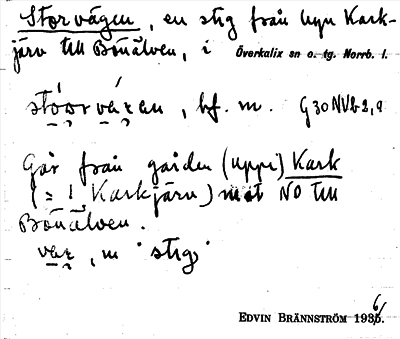 Storvägen, en stig från byn Kark-
järv till Bönälven, i Överkalix sn o. tg. Norrb. l.
bf. m.
Går från gården (uppi) Kark
(= i Karkjärv) mot NO till
Bönälven.
m "stig"
EDVIN BRÄNNSTRÖM 1936.